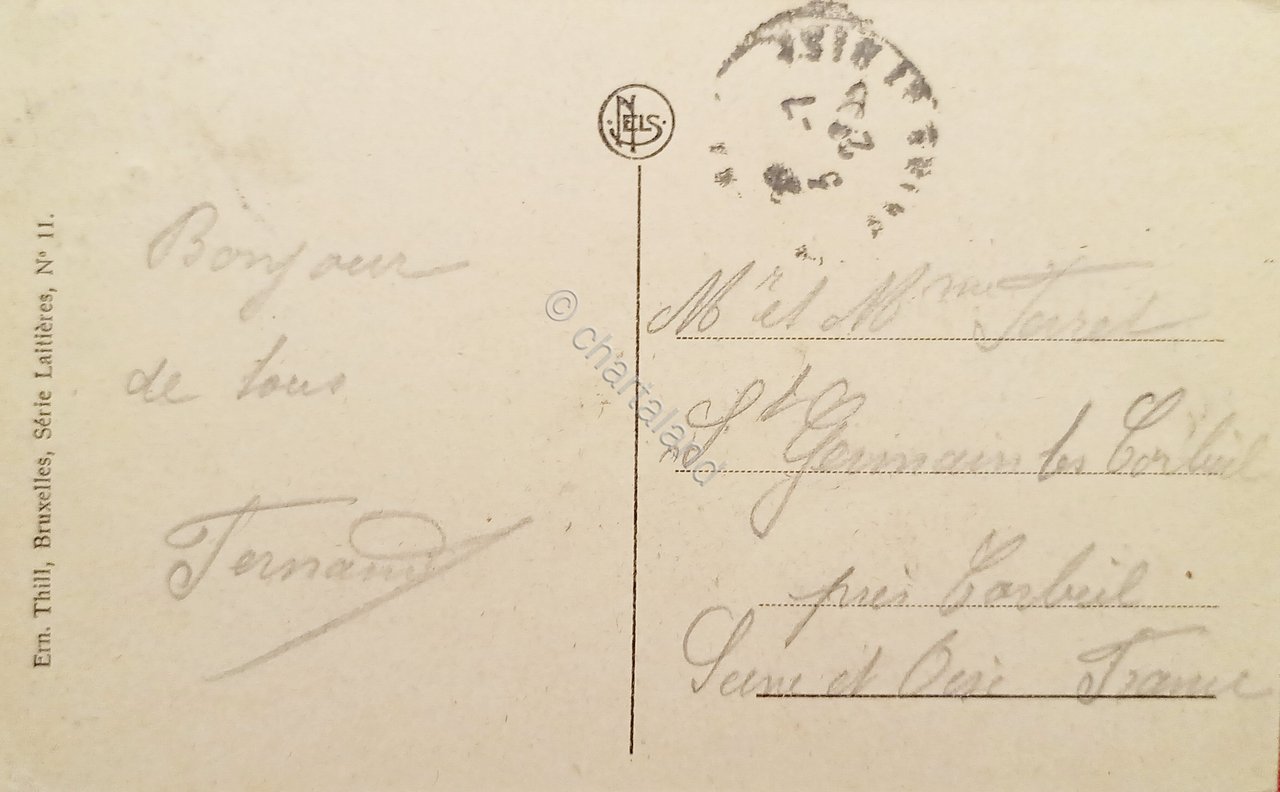 Ern. Thill, Bruxelles, Série Laitières, N° 11.
NELS
Bonjour
de tous
Fernand
Mr et Mme Terret
St Germain les Corbeil
près Corbeil
Seine et Oise France
© chartaland